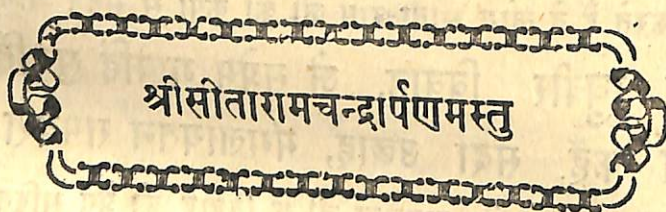 श्रीसीतारामचन्द्रार्पणमस्तु